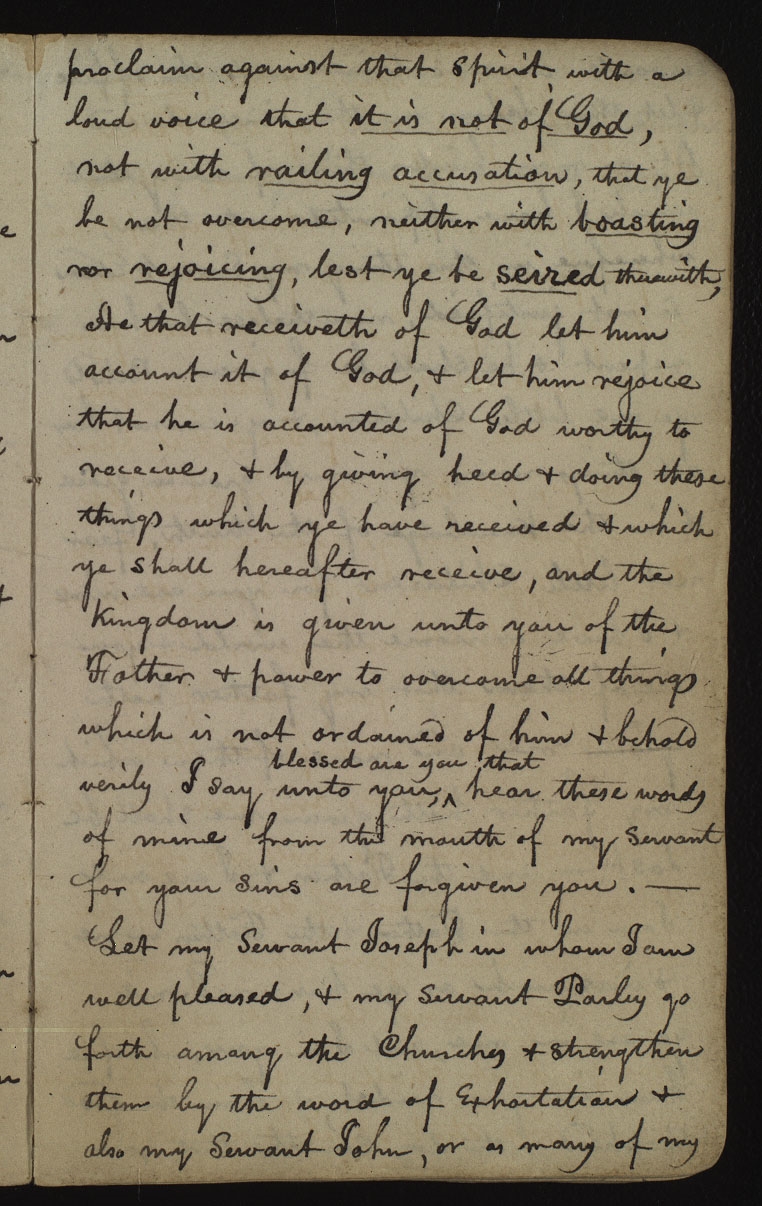 proclaim against that spirit with a
loud voice that it is not of God,
not with railing accusation, that ye
be not overcome, neither with boasting
nor rejoicing, lest ye be seized therewith,
He that receiveth of God let him
account it of God, & let him rejoice
that he is accounted of God worthy to
receive, & by giving heed & doing these
things which ye have received & which
ye shall hereafter receive, and the
Kingdom is given unto you of the
Father & power to overcome all things
which is not ordained of him & behold
blessed are you that
verily I say unto you, ^ hear these words
of mine from the mouth of my Servant
for your Sins are forgiven you. —
Let my Servant Joseph in whom I am
well pleased, & my Servant Parley go
forth among the Churches & strengthen
them by the word of Exhortation &
also my Servant John, or as many of my